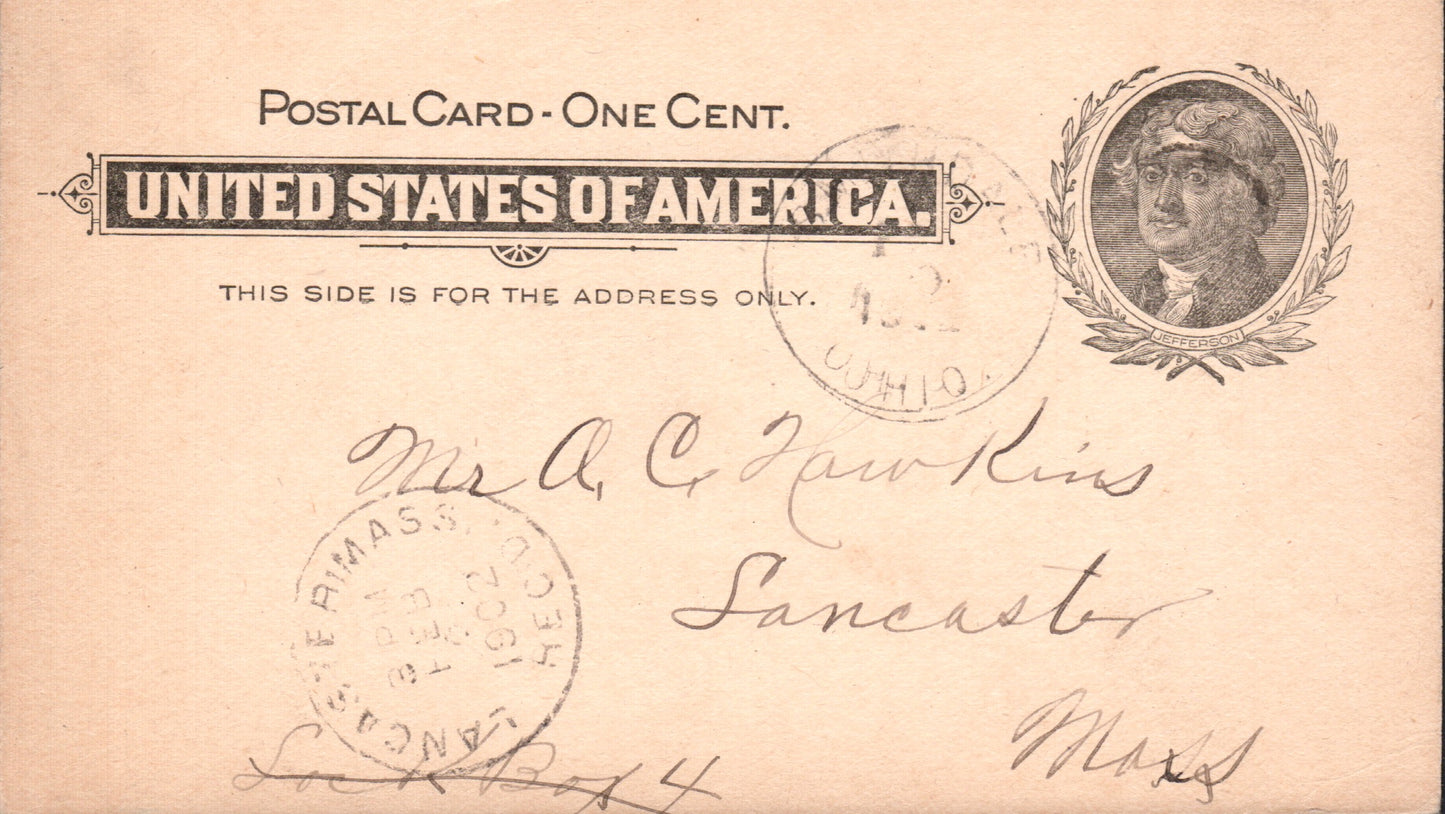 POSTAL CARD - ONE CENT.
UNITED STATES OF AMERICA.
THIS SIDE IS FOR THE ADDRESS ONLY.
JEFFERSON
OHIO
Mr A. C. Hawkins
Lancaster
Mass
LANCASTER MASS. REC'D.
8 PM
FEB
1902
Lock Box 4